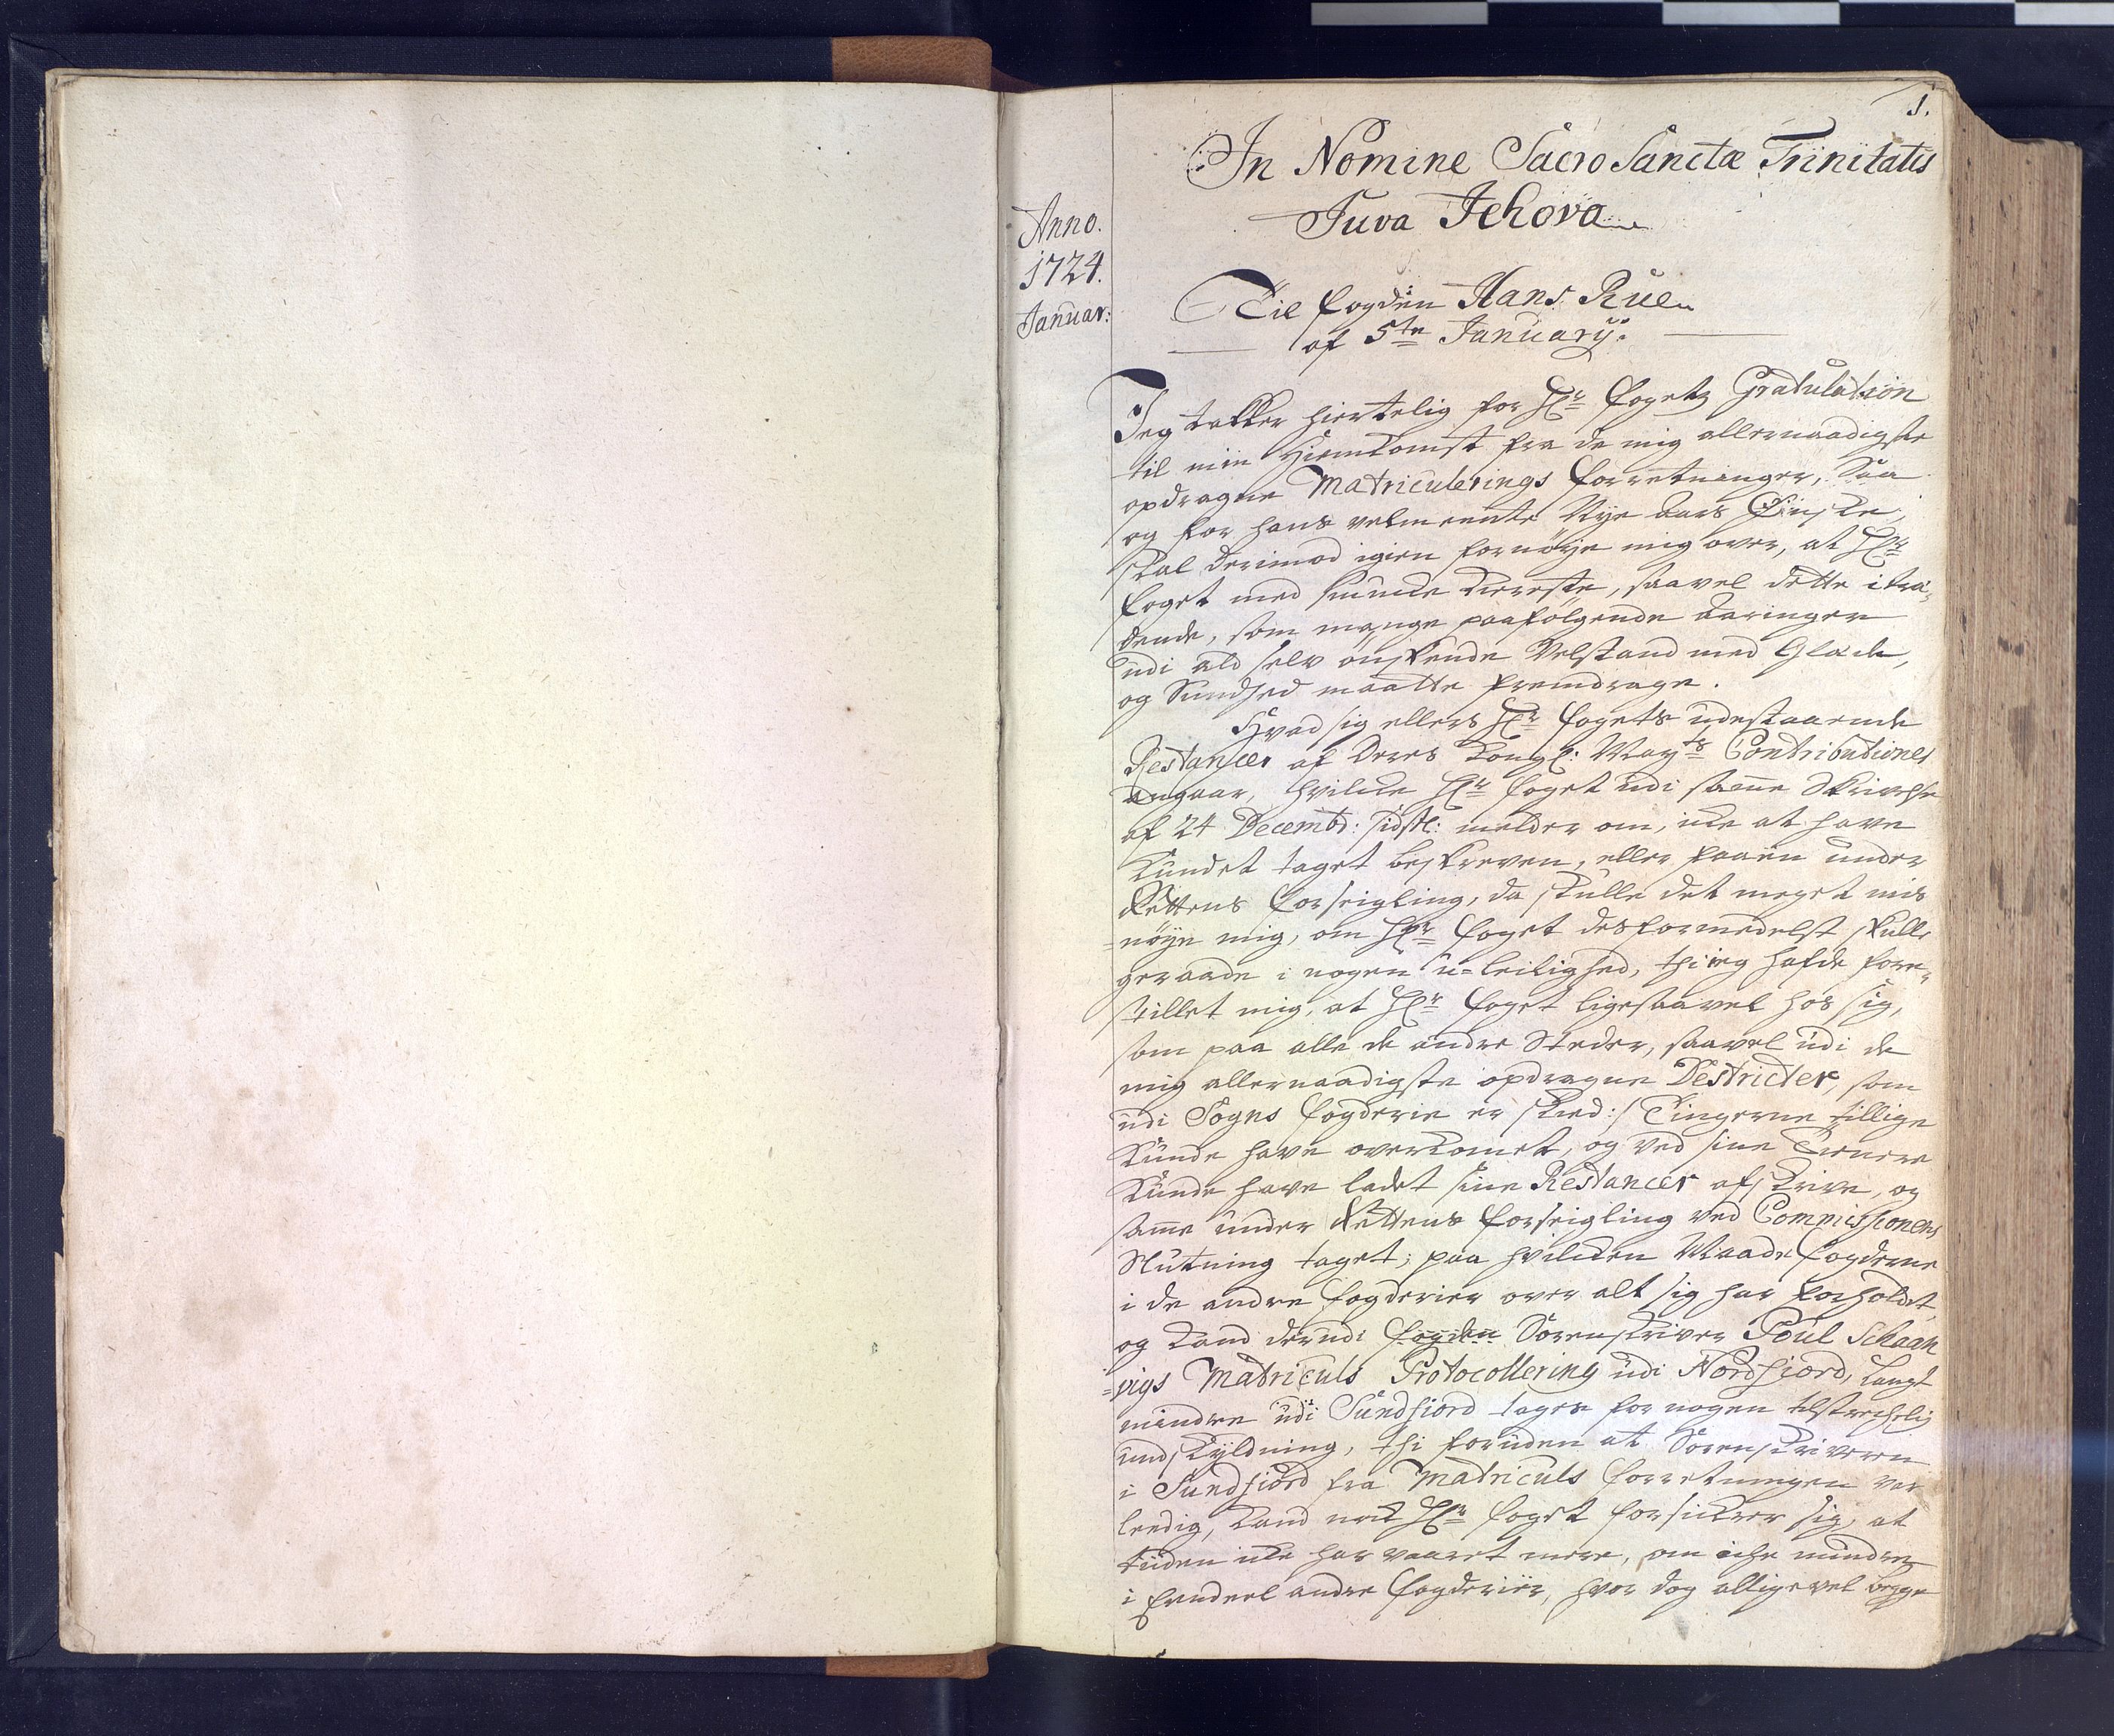 1.
In Nomine Sacro Sanctæ Trinitatis
Juva Jehova
Anno.
1724.
Januar:
Til Fogden Hans Rue
af 5te January.
Jeg takker hiertelig for Hr Fogets Gratulation
til min Hiemkomst fra de mig allernaadigste
opdragne Matriculerings Forretninger, Saa
og for hans velmeente Nye Aars Ønske,
skal derimod igien fornøye mig over, at Hr
Foget med sinne kiereste, saavel dette itræ-
dende, som mange paafølgende Aaringer
udi ald selv ønskende Velstand med Glæde,
og Sundhed maatte fremdrage.
Hvad sig ellers Hr Fogets udestaaende
Restancer af Deres Kongl: Mayts Contributioner
angaar, hvilke Hr Foget udi samme Skrivelse
af 24 Decembr: sidstl: melder om, icke at have
kundet taget beskreven, eller faaen under
Rettens Forseigling, da skulle det meget mis
-nøye mig, om Hr Foget desformedelst skulle
geraade i nogen u-leilighed, thi ieg hafde fore-
stillet mig, at Hr Foget ligesaavel hos sig,
som paa alle de andre Steder, saavel udi de
mig allernaadigste opdragne Destricter, som
udi Sogns Fogderie er skeed :/ Tingerne tillige
kunde have overkomet, og ved sine Tienere
kunde have ladet sine Restancer afskrive, og
samme under Rettens Forseigling ved Commissionens
Slutning taget; paa hvilken Maade Fogderne
i de andre Fogderier over alt sig har forholdet,
og kand derudi Fogden Sorenskriver Poul Schaan
-vigs Matriculs Protocollering udi Nordfiord, langt
mindre udi Sundfiord tages for nogen tilstrechelig
undskyldning, thi foruden at Sorenskriveren
i Sundfiord fra Matriculs Forretningen var
leedig, kand nock Hr Foget forsikrer sig, at
tiiden icke har vaaret mere, om icke mindre
i Eendeel andre Fogderier, hvor dog alligevel begge